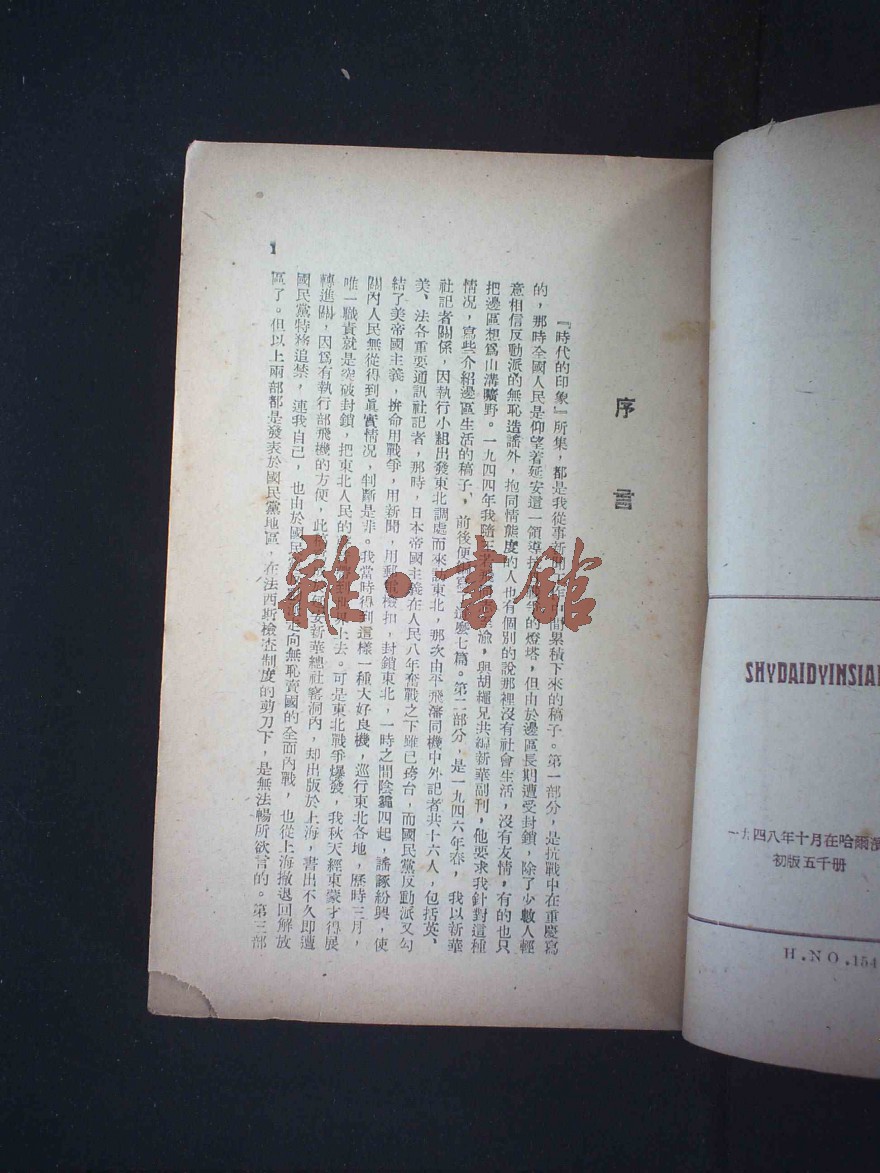 SHYDAIDYINSIAN
一九四八年十月在哈爾濱
初版五千册
H.NO.154
序言
『時代的印象』所集，都是我從事新聞工作中間累積下來的稿子。第一部分，是抗戰中在重慶寫
的，那時全國人民是仰望着延安這一領導抗戰的燈塔，但由於邊區長期遭受封鎖，除了少數人輕
意相信反動派的無恥造謠外，抱同情態度的人也有個別的說那裡沒有社會生活，沒有友情，有的也只
把邊區想爲山溝曠野。一九四四年我踏 渝，與胡繩兄共編新華副刊，他要求我針對這種
情况，寫些介紹邊區生活的稿子，前後便 這麽七篇。第二部分，是一九四六年春，我以新華
社記者關係，因執行小組出發東北調處而來訪東北，那次由平飛瀋同機中外記者共十六人，包括英、
美、法各重要通訊社記者，那時，日本帝國主義在人民八年奮戰之下雖已垮台，而國民黨反動派又勾
結了美帝國主義，拚命用戰爭，用新聞，用郵電檢扣，封鎖東北，一時之間陰霾四起，謠諑紛興，使
關內人民無從得到眞實情况，判斷是非。我當時得到這樣一種大好良機，巡行東北各地，歷時三月，
唯一職責就是突破封鎖，把東北人民的 上去。可是東北戰爭爆發，我秋天經東蒙才得展
轉進關，因爲有執行部飛機的方便，此 安新華總社窰洞內，却出版於上海，書出不久即遭
國民黨特務追禁，連我自己，也由於國民 走向無恥賣國的全面內戰，也從上海撤退回解放
區了。但以上兩部都是發表於國民黨地區，在法西斯檢查制度的剪刀下，是無法暢所欲言的。第三部
1
雜·書館